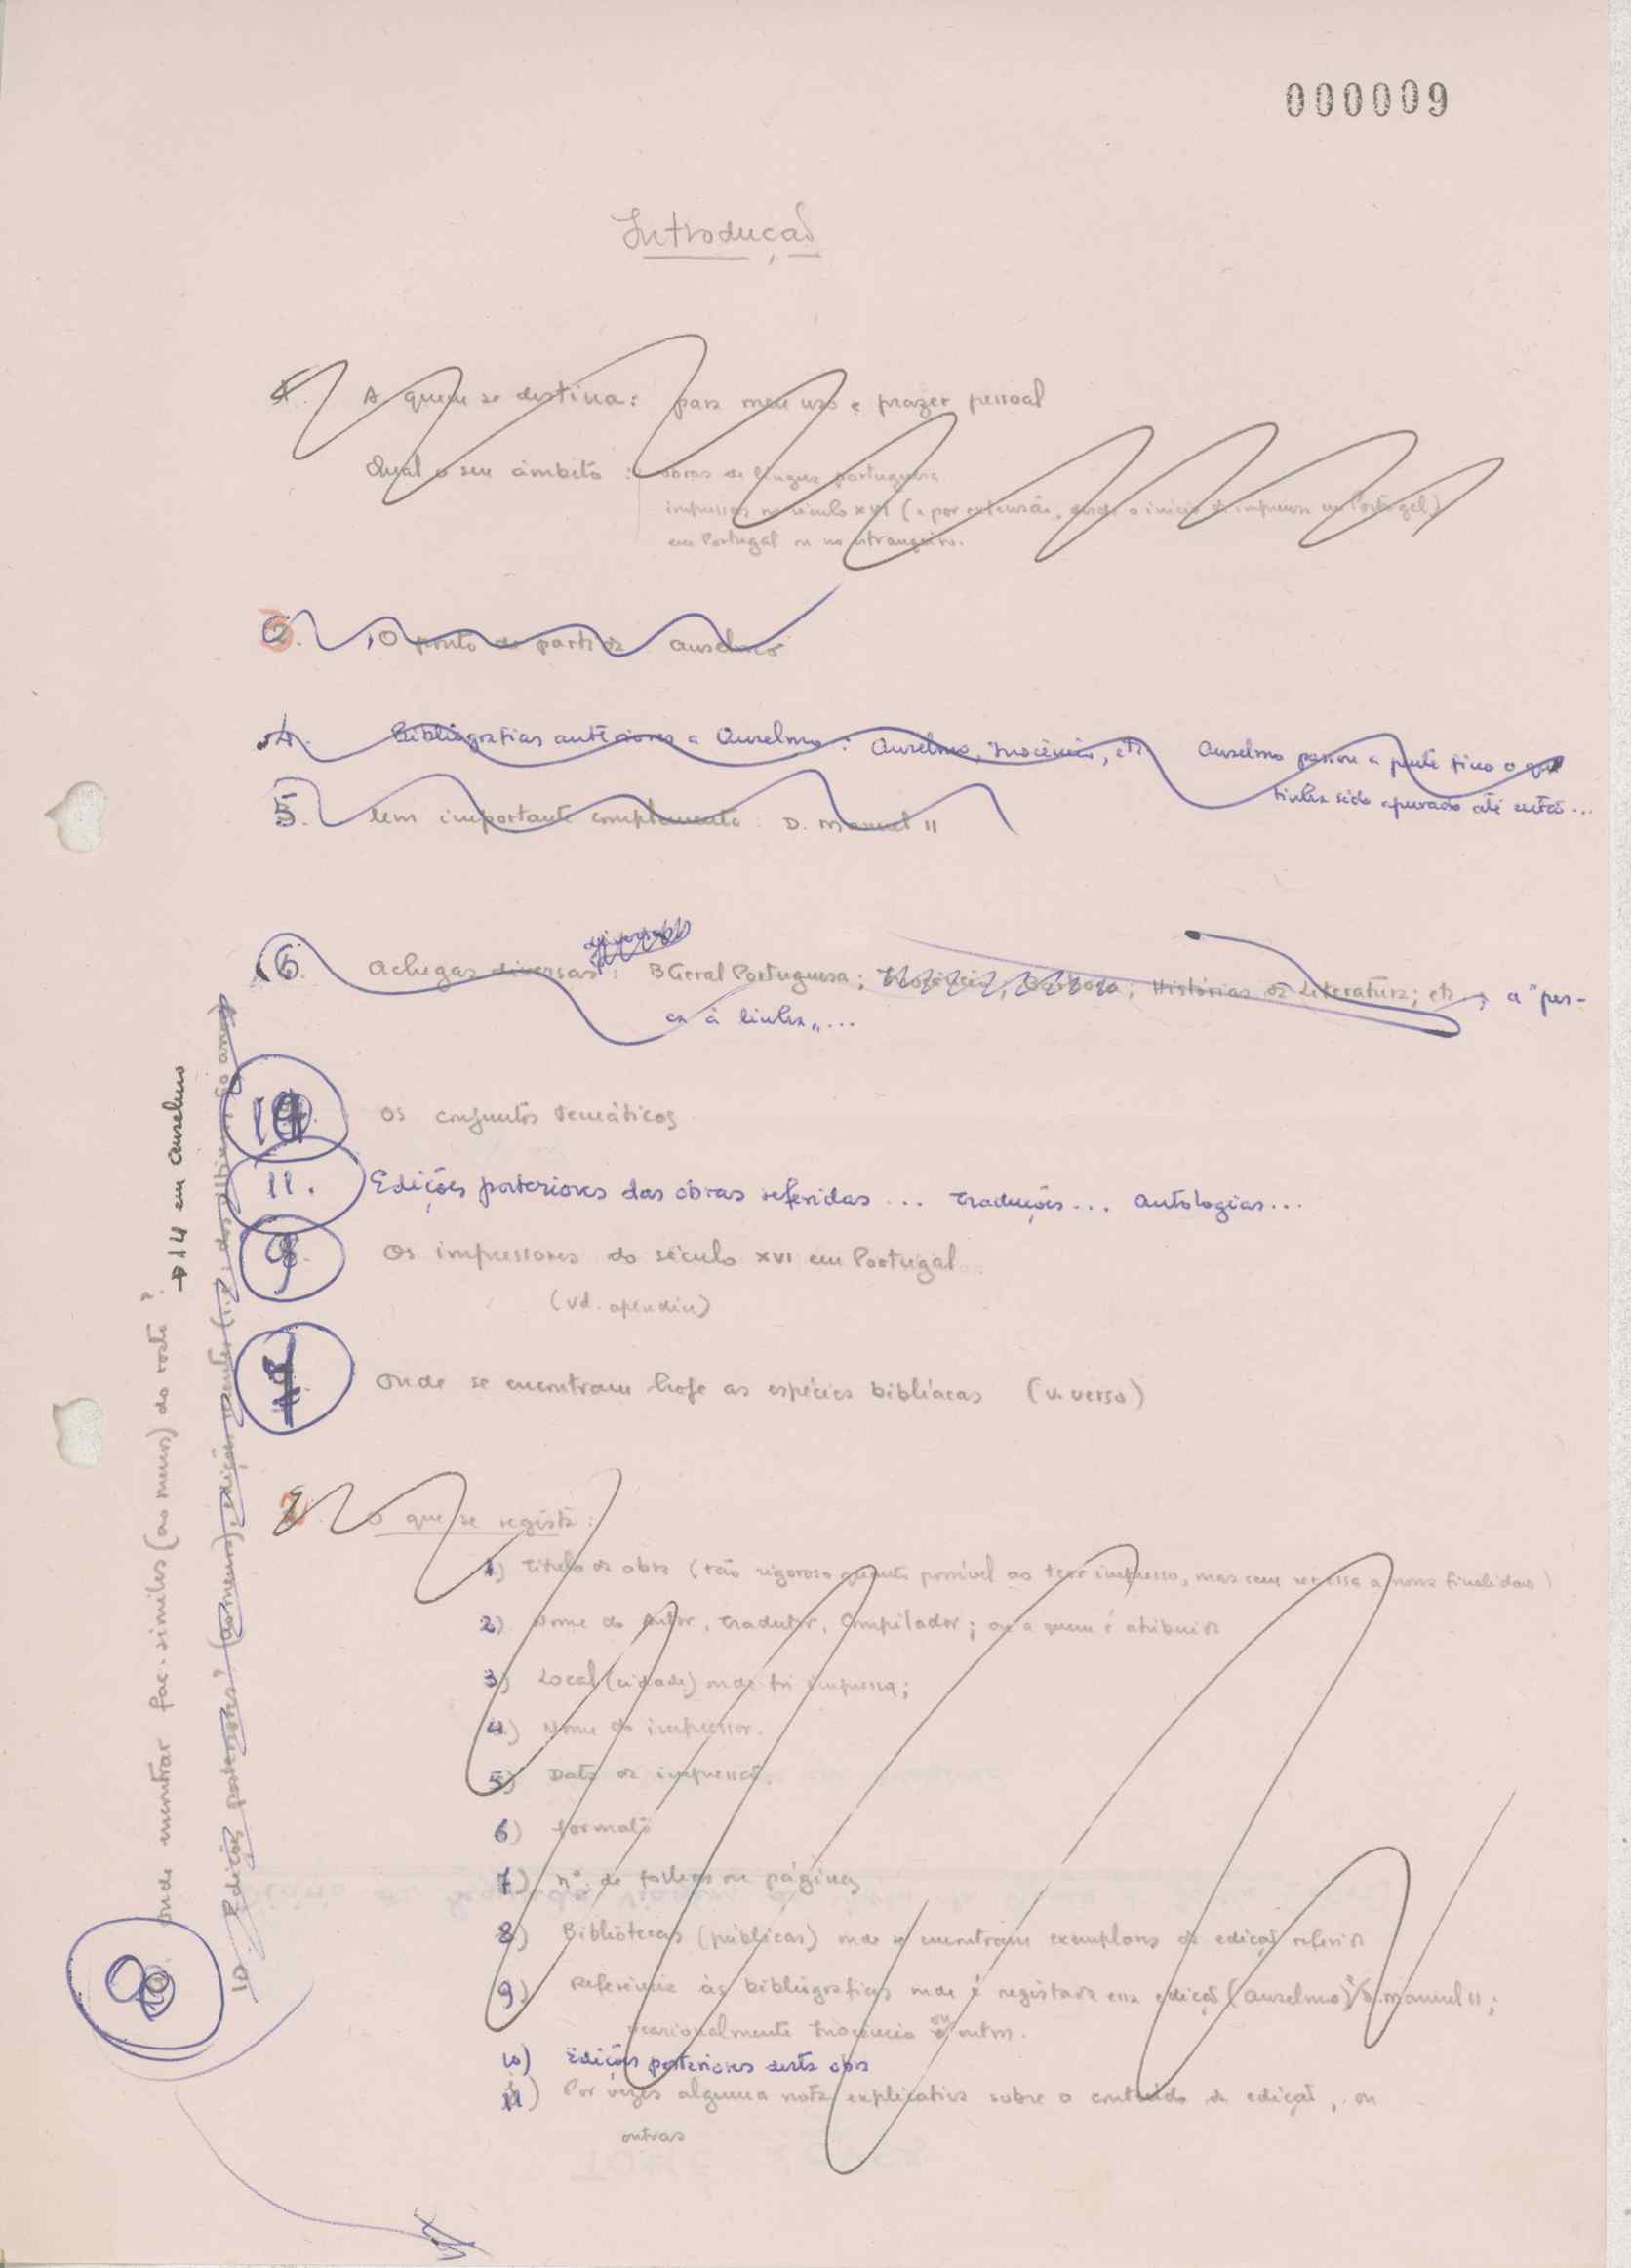 000009
Introdução
1. A quem se destina: para meu uso e prazer pessoal
Qual o seu âmbito: obras de língua portuguesa
impressas no século XVI (e por extensão, desde o início da imprensa em Portugal)
em Portugal ou no estrangeiro.
O ponto de partida Anselmo
4. Bibliografias anteriores a Anselmo: Anselmo, Inocêncio, etc Anselmo passou a pente fino o que
tinha sido apurado até então...
5. Um importante complemento: D. Manuel II
6. Achegas diversas: diversas B Geral Portuguesa; Inocêncio, Barbosa; Histórias da Literatura; etc; a "pes-
ca à linha"...
10 Os conjuntos temáticos
11. Edições posteriores das obras referidas... traduções... antologias...
9. Os impressores do século XVI em Portugal
(vd. apêndice)
Onde se encontram hoje as espécies bibliacas (v. verso)
2. O que se regista:
1) Título da obra (tão rigoroso quanto possível ao teor impresso, mas sem ser essa a nossa finalidade)
2) Nome do Autor, Tradutor, Compilador; ou a quem é atribuída
3) Local (cidade) onde foi impressa;
4) Nome do impressor.
5) Data da impressão.
6) Formato
7) nº. de folhas ou páginas
8) Bibliotecas (públicas) onde se encontram exemplares da edição referida
9) Referência às bibliografias onde é registada essa edição (Anselmo) D. Manuel II;
ocasionalmente Inocêncio ou outros.
10) Edições posteriores desta obra
11) Por vezes alguma nota explicativa sobre o conteúdo da edição, ou
outras
8 Onde encontrar fac-similes (ao menos) do rosto?
→ 14 em Anselmo
10. Edições posteriores? (ao menos), edições recentes (i.e. dos últimos 50 anos)